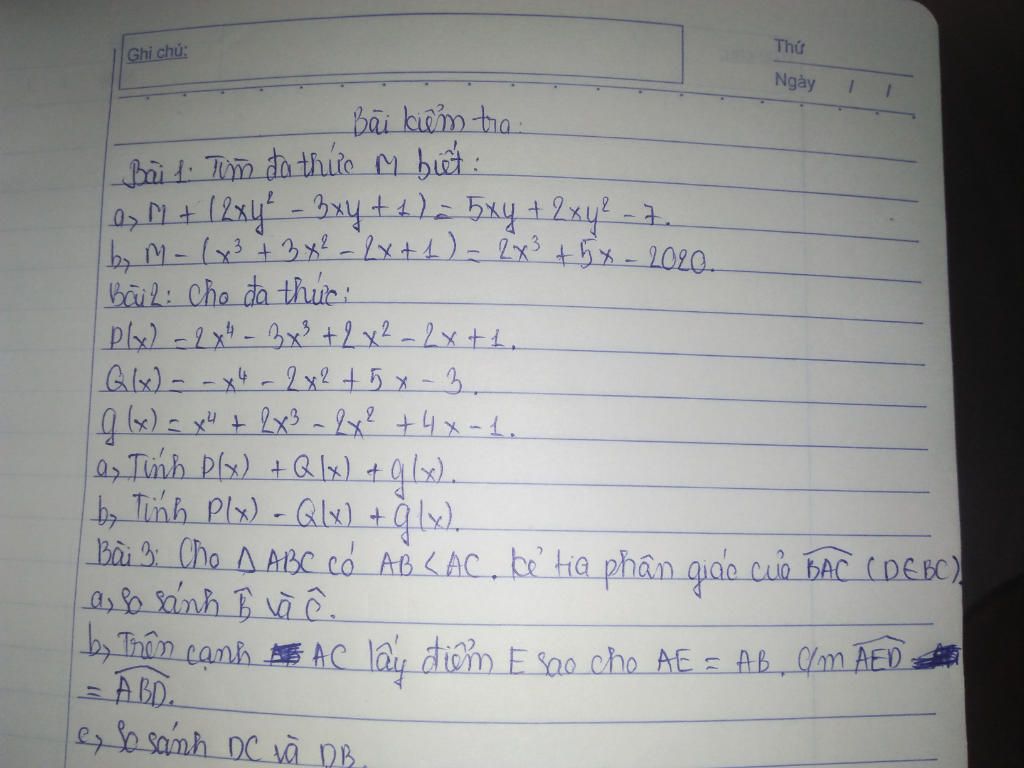 Ghi chú:
Thứ
Ngày / /
Bài kiểm tra:
Bài 1: Tìm đa thức M biết:
a, M + (2xy² - 3xy + 1) = 5xy + 2xy² - 7.
b, M - (x³ + 3x² - 2x + 1) = 2x³ + 5x - 2020.
Bài 2: Cho đa thức:
P(x) = 2x⁴ - 3x³ + 2x² - 2x + 1.
Q(x) = -x⁴ - 2x² + 5x - 3.
g(x) = x⁴ + 2x³ - 2x² + 4x - 1.
a, Tính P(x) + Q(x) + g(x).
b, Tính P(x) - Q(x) + g(x).
Bài 3: Cho Δ ABC có AB < AC. kẻ tia phân giác của \widehat{BAC} (D∈BC)
a, So sánh \widehat{B} và \widehat{C}.
b, Trên cạnh AC lấy điểm E sao cho AE = AB. C/m \widehat{AED}
= \widehat{ABD}.
c, So sánh DC và DB.